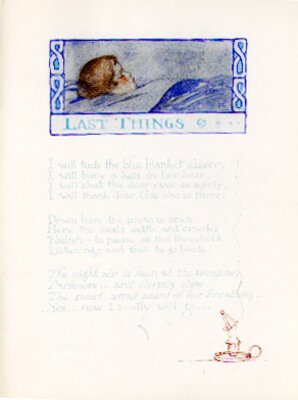 LAST THINGS
I will tuck the blue blanket closer,
I will bury a kiss in her hair,
I will shut the door ever so softly,
I will thank dear God she is there.
Down here the piano is open,
Here the coals settle and crack;
Foolish - to pause at the threshold
Listening - and then to go back.
The night air is keen at the window,
Darkness ... and sleepily slow
The sweet, small sound of her breathing ...
Yes .. now I really will go ...